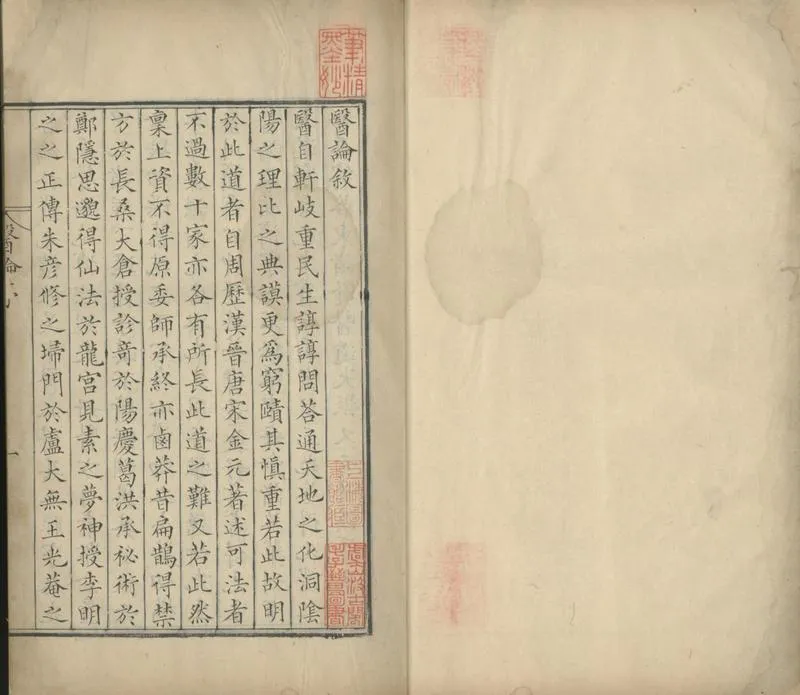 筆精
醫論敘
醫自軒岐重民生諄諄問荅通天地之化洞隂
陽之理比之典謨更爲窮賾其慎重若此故明
於此道者自周歷漢晉唐宋金元著述可法者
不過數十家亦各有所長此道之難又若此然
稟上資不得原委師承終亦鹵莽昔扁鵲得禁
方於長桑大倉授診竒於陽慶葛洪承祕術於
鄭隱思邈得仙法於龍宮見素之夢神授李明
之之正傳朱彦修之埽門於盧大無王光菴之
醫論
一